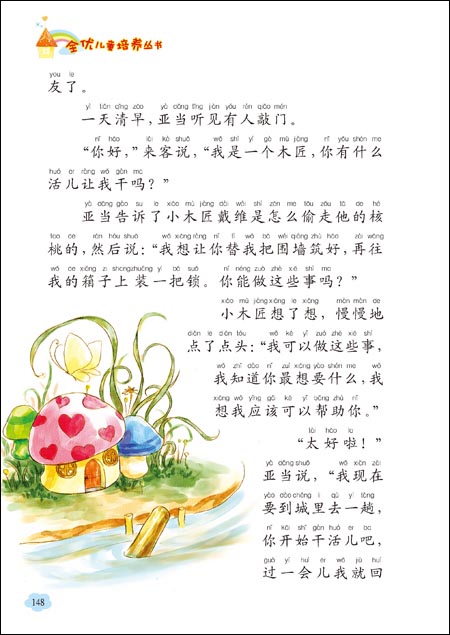 全优儿童培养丛书
yǒu le
友了。
yì tiān qīng zǎo yà dāng tīng jiàn yǒu rén qiāo mén
一天清早,亚当听见有人敲门。
nǐ hǎo lái kè shuō wǒ shì yí gè mù jiàng nǐ yǒu shén me
“你好,”来客说,“我是一个木匠,你有什么
huó er ràng wǒ gàn ma
活儿让我干吗?”
yà dāng gào su le xiǎo mù jiàng dài wéi shì zěn me tōu zǒu tā de hé
亚当告诉了小木匠戴维是怎么偷走他的核
táo de rán hòu shuō wǒ xiǎng ràng nǐ tì wǒ bǎ wéi qiáng zhù hǎo zài wǎng
桃的,然后说:“我想让你替我把围墙筑好,再往
wǒ de xiāng zi shàng zhuāng yì bǎ suǒ nǐ néng zuò zhè xiē shì ma
我的箱子上装一把锁。你能做这些事吗?”
xiǎo mù jiàng xiǎng le xiǎng màn màn de
小木匠想了想,慢慢地
diǎn le diǎn tóu wǒ kě yǐ zuò zhè xiē shì
点了点头:“我可以做这些事,
wǒ zhī dào nǐ zuì xiǎng yào shén me wǒ
我知道你最想要什么,我
xiǎng wǒ yīng gāi kě yǐ bāng zhù nǐ
想我应该可以帮助你。”
tài hǎo la
“太好啦!”
yà dāng shuō wǒ xiàn zài
亚当说,“我现在
yào dào chéng lǐ qù yí tàng
要到城里去一趟,
nǐ kāi shǐ gàn huó er ba
你开始干活儿吧,
guò yí huì er wǒ jiù huí
过一会儿我就回
148